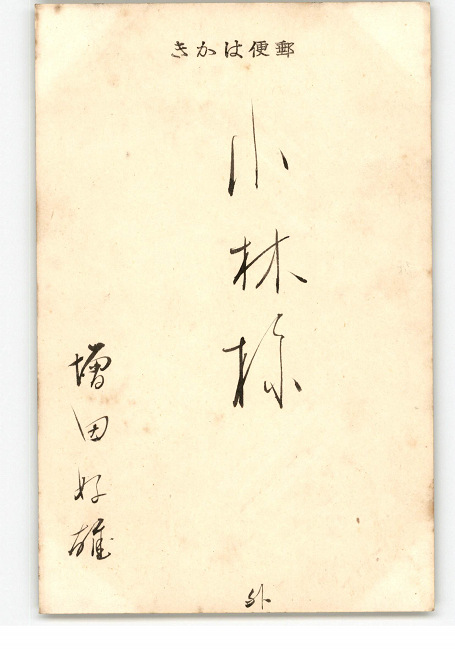 郵便はかき
小林様
増田好雄
外